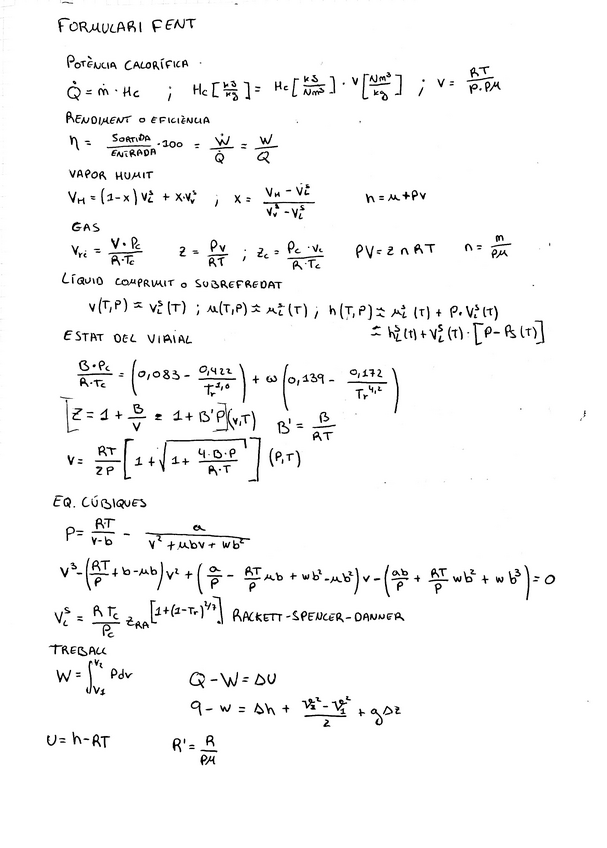 FORMULARI FENT
POTÈNCIA CALORÍFICA.
Q̇ = ṁ · Hc ; Hc [kJ/kg] = Hc [kJ/Nm³] · V [Nm³/kg] ; V = RT/(P·PM)
RENDIMENT O EFICIÈNCIA
η = SORTIDA/ENTRADA · 100 = Ẇ/Q̇ = W/Q
VAPOR HUMIT
V_M = (1-x) V_L^s + x·V_v^s ; x = (V_M - V_L^s)/(V_v^s - V_L^s) h = u + PV
GAS
V_ri = (V·Pc)/(R·Tc) Z = PV/RT ; Zc = (Pc·Vc)/(R·Tc) PV = Z n RT n = m/PM
LÍQUID COMPRIMIT O SUBREFREDAT
v(T,P) ≈ V_L^s(T) ; u(T,P) ≈ u_L^s(T) ; h(T,P) ≈ u_L^s(T) + P·V_L^s(T)
≈ h_L^s(T) + V_L^s(T) · [P - Ps(T)]
ESTAT DEL VIRIAL
(B·Pc)/(R·Tc) = (0,083 - 0,422/Tr^1,6) + ω (0,139 - 0,172/Tr^4,2)
[Z = 1 + B/V ≈ 1 + B'P] (V,T) B' = B/RT
V = RT/2P [1 + √(1 + (4·B·P)/(R·T))] (P,T)
EQ. CÚBIQUES
P = RT/(V-b) - a/(V² + ubv + wb²)
V³ - (RT/P + b - ub) V² + (a/P - RT/P ub + wb² - ub²) V - (ab/P + RT/P wb² + wb³) = 0
V_L^s = (R Tc)/Pc Z_RA^[1+(1-Tr)^2/7] RACKETT-SPENCER-DANNER
TREBALL
W = ∫_V1^V2 Pdv Q - W = ΔU
q - w = Δh + (V₂² - V₁²)/2 + gΔz
U = h - RT R' = R/PM